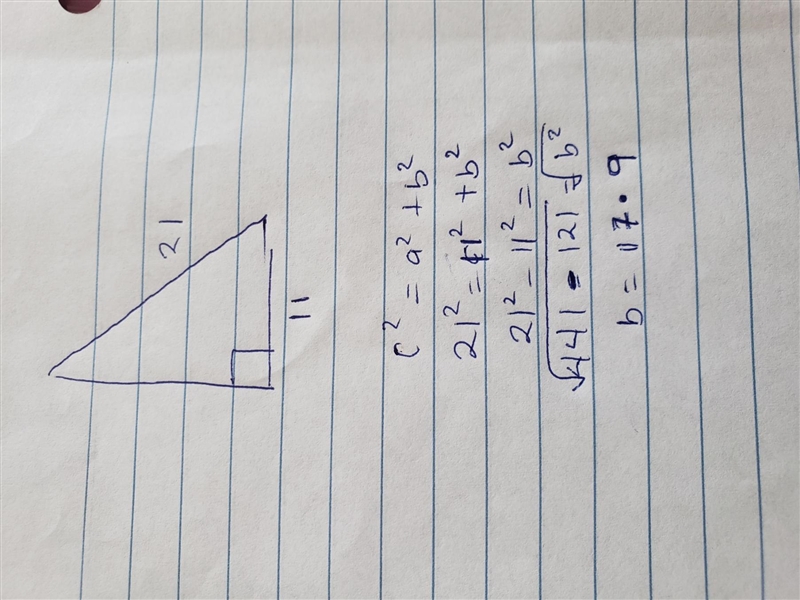 21
11
c² = a² + b²
21² = 11² + b²
21² - 11² = b²
√441 - 121 = √b²
b = 17.9